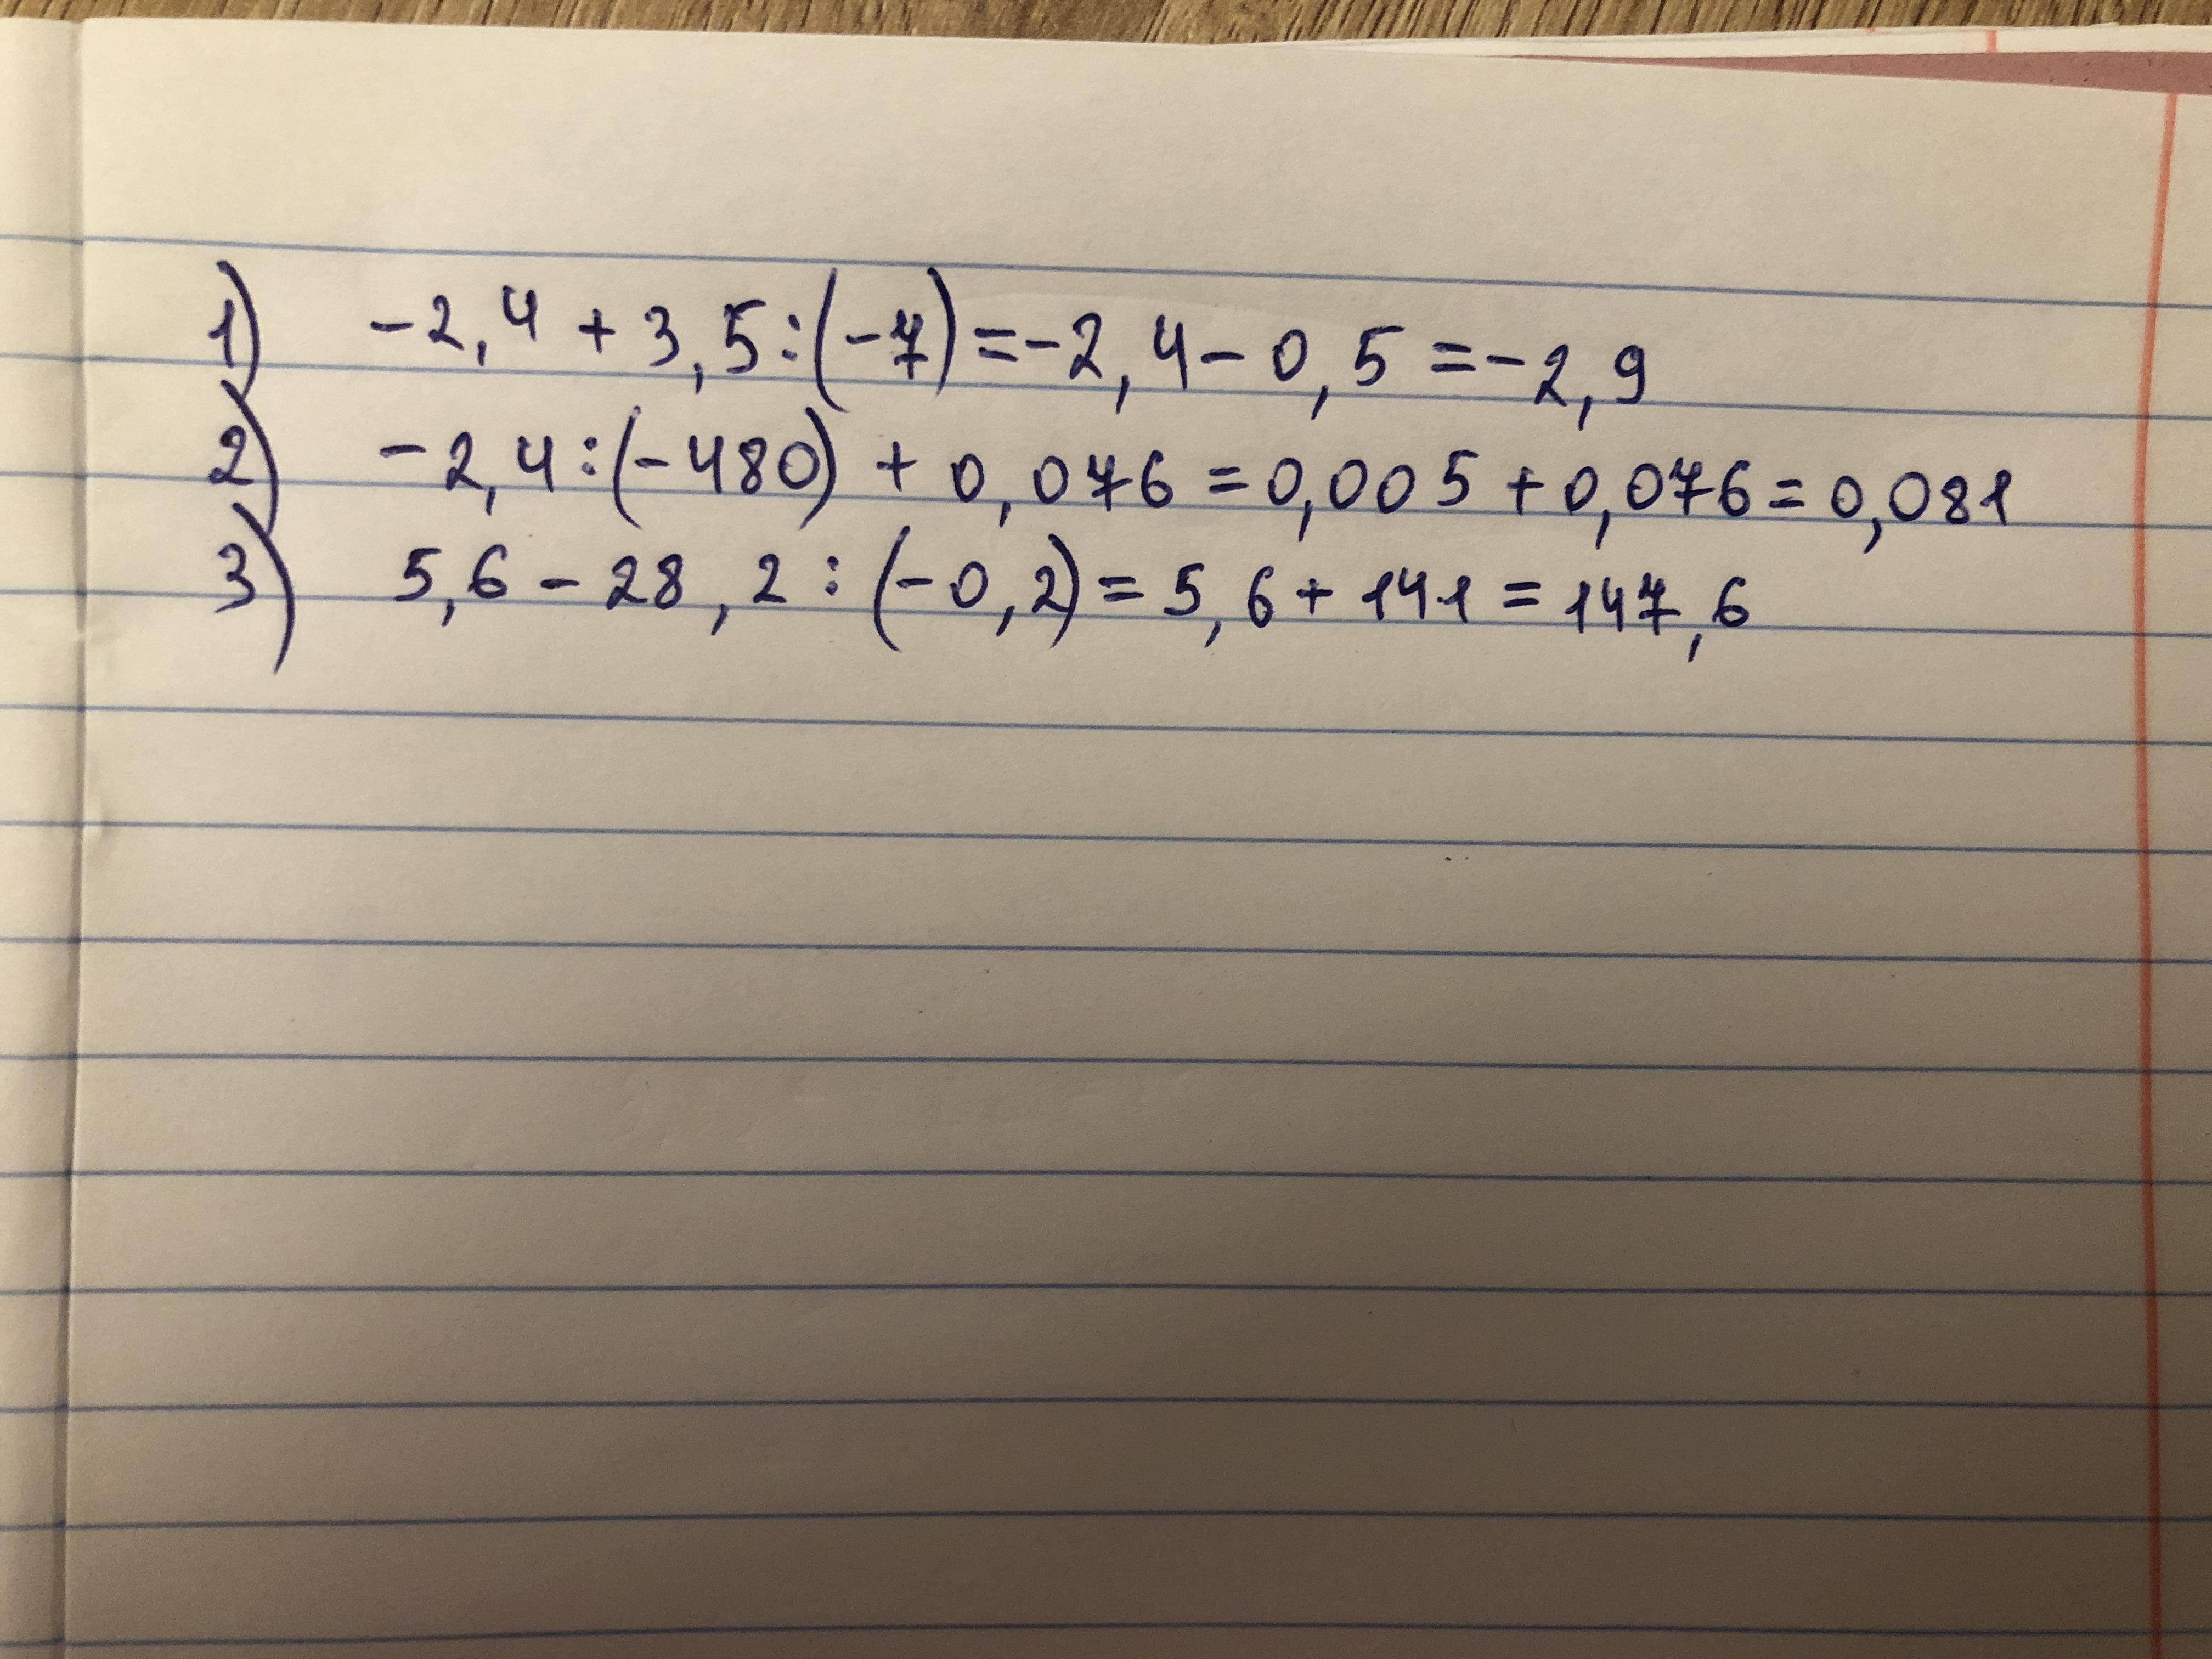 1) -2,4 + 3,5 : (-7) = -2,4 - 0,5 = -2,9
2) -2,4 : (-480) + 0,076 = 0,005 + 0,076 = 0,081
3) 5,6 - 28,2 : (-0,2) = 5,6 + 141 = 147,6